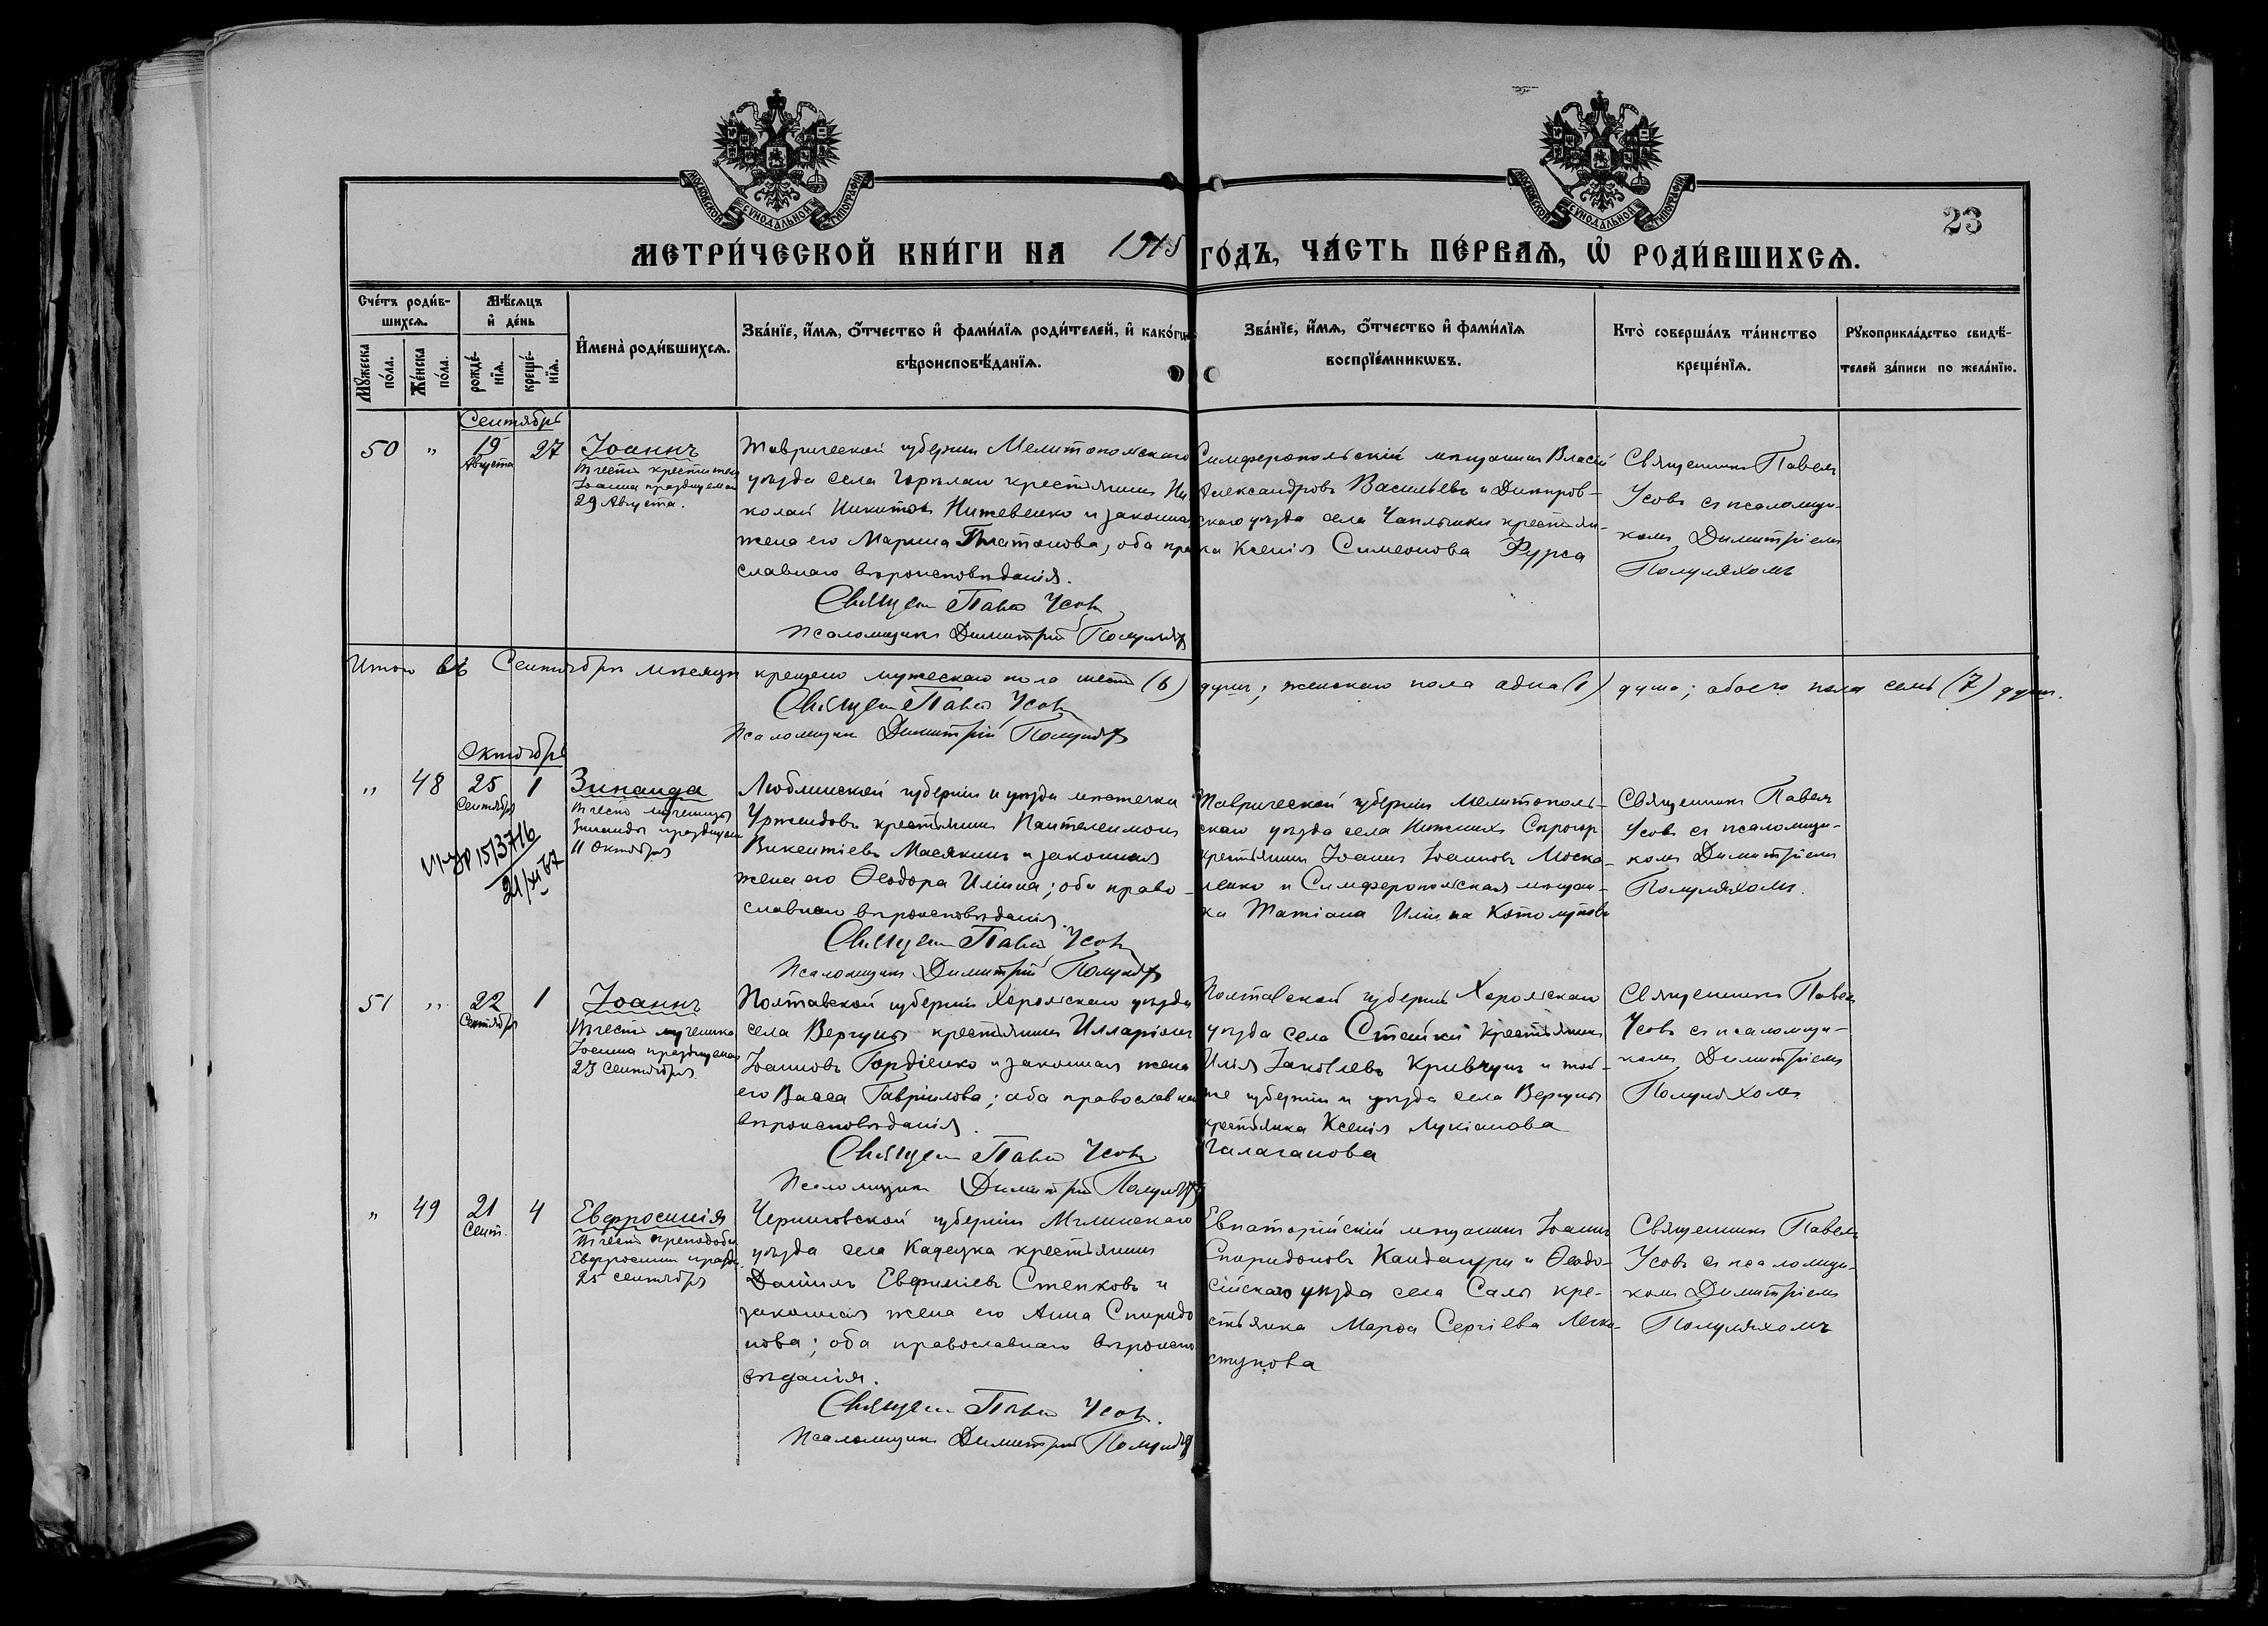 МОСКОВСКОЙ СѴНОДАЛЬНОЙ ТИПОГРАФІИ
МОСКОВСКОЙ СѴНОДАЛЬНОЙ ТИПОГРАФІИ
23
МЕТРИ́ЧЕСКОЙ КНИ́ГИ НА 1915 ГО́ДЪ, ЧА́СТЬ ПЕ́РВАѦ, Ѡ҆ РОДИ́ВШИХСѦ.
Сче́тъ роди́в-
шихсѧ.
Мꙋ́жеска по́ла.
Же́нска по́ла.
Мѣ́сѧцъ
и҆ де́нь
рожде́-
нїѧ.
креще́-
нїѧ.
И҆мена̀ роди́вшихсѧ.
Зва́нїе, и҆́мѧ, ѻ҆́тчество и҆ фами́лїѧ роди́телей, и҆ како́гѡ
вѣроисповѣ́данїѧ.
Зва́нїе, и҆́мѧ, ѻ҆́тчество и҆ фами́лїѧ
воспрїе́мникѡвъ.
Кто̀ соверша́лъ та́инство
креще́нїѧ.
Рꙋкоприкла́дство свидѣ́-
телей за́писи по жела́нїю.
Сентябрь
50 " 19 Августа 27
Іоаннъ
въ честь крестителя
Іоанна празднуемаго
29 Августа.
Таврической губерніи Мелитопольскаго
уѣзда села крестьянинъ Ни
колай Никитовъ Нижевенко и законная
жена его Марина Платонова, оба пра
славнаго вѣроисповѣданія.
Священ Павелъ Усовъ
Псаломщикъ Димитрій Полуляхъ
Симферопольскій мѣщанинъ Власій
Александровъ Васильевъ и Днѣпров-
скаго уѣзда села Чаплинки крестьян-
ка Ксенія Симеонова Фурса
Священникъ Павелъ
Усовъ съ псаломщи-
комъ Димитріемъ
Полуляхомъ
Итого въ Сентябрѣ мѣсяцѣ крещено мужескаго пола шесть (6) душъ; женскаго пола одна (1) душа; обоего пола семь (7) душъ.
Священ Павелъ Усовъ
Псаломщикъ Димитрій Полуляхъ
Октябрь
" 48 25 Сентября 1
Зинаида
въ честь мученицы
Зинаиды празднуем
11 Октября
1513716
21/XI 67
Люблинской губерніи и уѣзда мѣстечка
Уржендовъ крестьянинъ Пантелеимонъ
Викентіевъ Масякинъ и законная
жена его Ѳеодора Ильина; оба право-
славнаго вѣроисповѣданія.
Священ Павелъ Усовъ
Псаломщикъ Димитрій Полуляхъ
Таврической губерніи Мелитополь-
скаго уѣзда села Нижнихъ Сѣрогозъ
крестьянинъ Іоаннъ Іоанновъ Моска-
ленко и Симферопольская мѣщан-
ка Татіана Ильина Котолупова
Священникъ Павелъ
Усовъ съ псаломщи-
комъ Димитріемъ
Полуляхомъ.
51 " 22 Сентября 1
Іоаннъ
въ честь мученика
Іоанна празднуемаго
23 Сентября.
Полтавской губерніи Хорольскаго уѣзда
села Вергуны крестьянинъ Илларіонъ
Іоанновъ Гордіенко и законная жена
его Васса Гавріилова; оба православнаго
вѣроисповѣданія.
Священ Павелъ Усовъ
Псаломщикъ Димитрій Полуляхъ
Полтавской губерніи Хорольскаго
уѣзда села Стайки крестьянинъ
Илія Іаковлевъ Кривчунъ и той-
же губерніи и уѣзда села Вергуны
крестьянка Ксенія Лукіанова
Галаганова
Священникъ Павелъ
Усовъ съ псаломщи-
комъ Димитріемъ
Полуляхомъ.
" 49 21 Сент. 4
Евфросинія
въ честь преподобн
Евфросиніи празд.
25 Сентября
Черниговской губерніи Мглинскаго
уѣзда села Кадецка крестьянинъ
Даніилъ Евфиміевъ Степковъ и
законная жена его Анна Спиридо
нова; оба православнаго вѣроиспо
вѣданія.
Священ Павелъ Усовъ.
Псаломщикъ Димитрій Полуляхъ
Евпаторійскій мѣщанинъ Іоаннъ
Спиридоновъ Кандагури и Ѳеодо-
сійскаго уѣзда села Салы кре-
стьянка Марфа Сергіева Легко-
ступова
Священникъ Павелъ
Усовъ съ псаломщи-
комъ Димитріемъ
Полуляхомъ